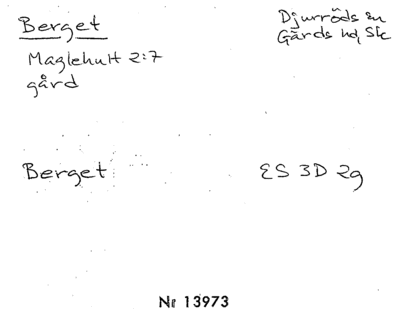 Berget
Djurröds sn
Gärds hd, Sk
Maglehult 2:7
gård
Berget
ES 3D 2g
Nr 13973